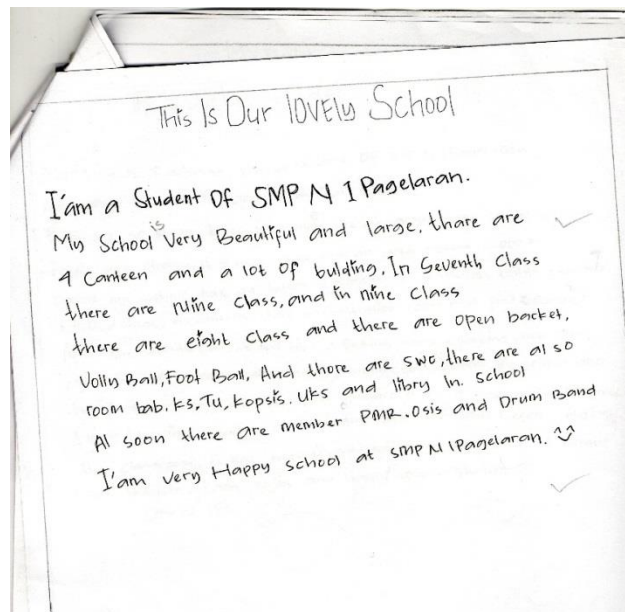 This Is Our lOVEly School
I'am a Student Of SMP N 1 Pagelaran.
My School is Very Beautiful and large, thare are
4 Canteen and a lot Of bulding. In Seventh Class
there are nuine Class, and in nine Class
there are eight Class and there are open backet,
Volly Ball, Foot Ball, And thore are swc, there are al so
room bab. Ks, Tu, Kopsis. Uks and libry In. School
Al soon there are member PMR. Osis and Drum Band
I'am very Happy school at SMP N 1 Pagelaran. ^‿^